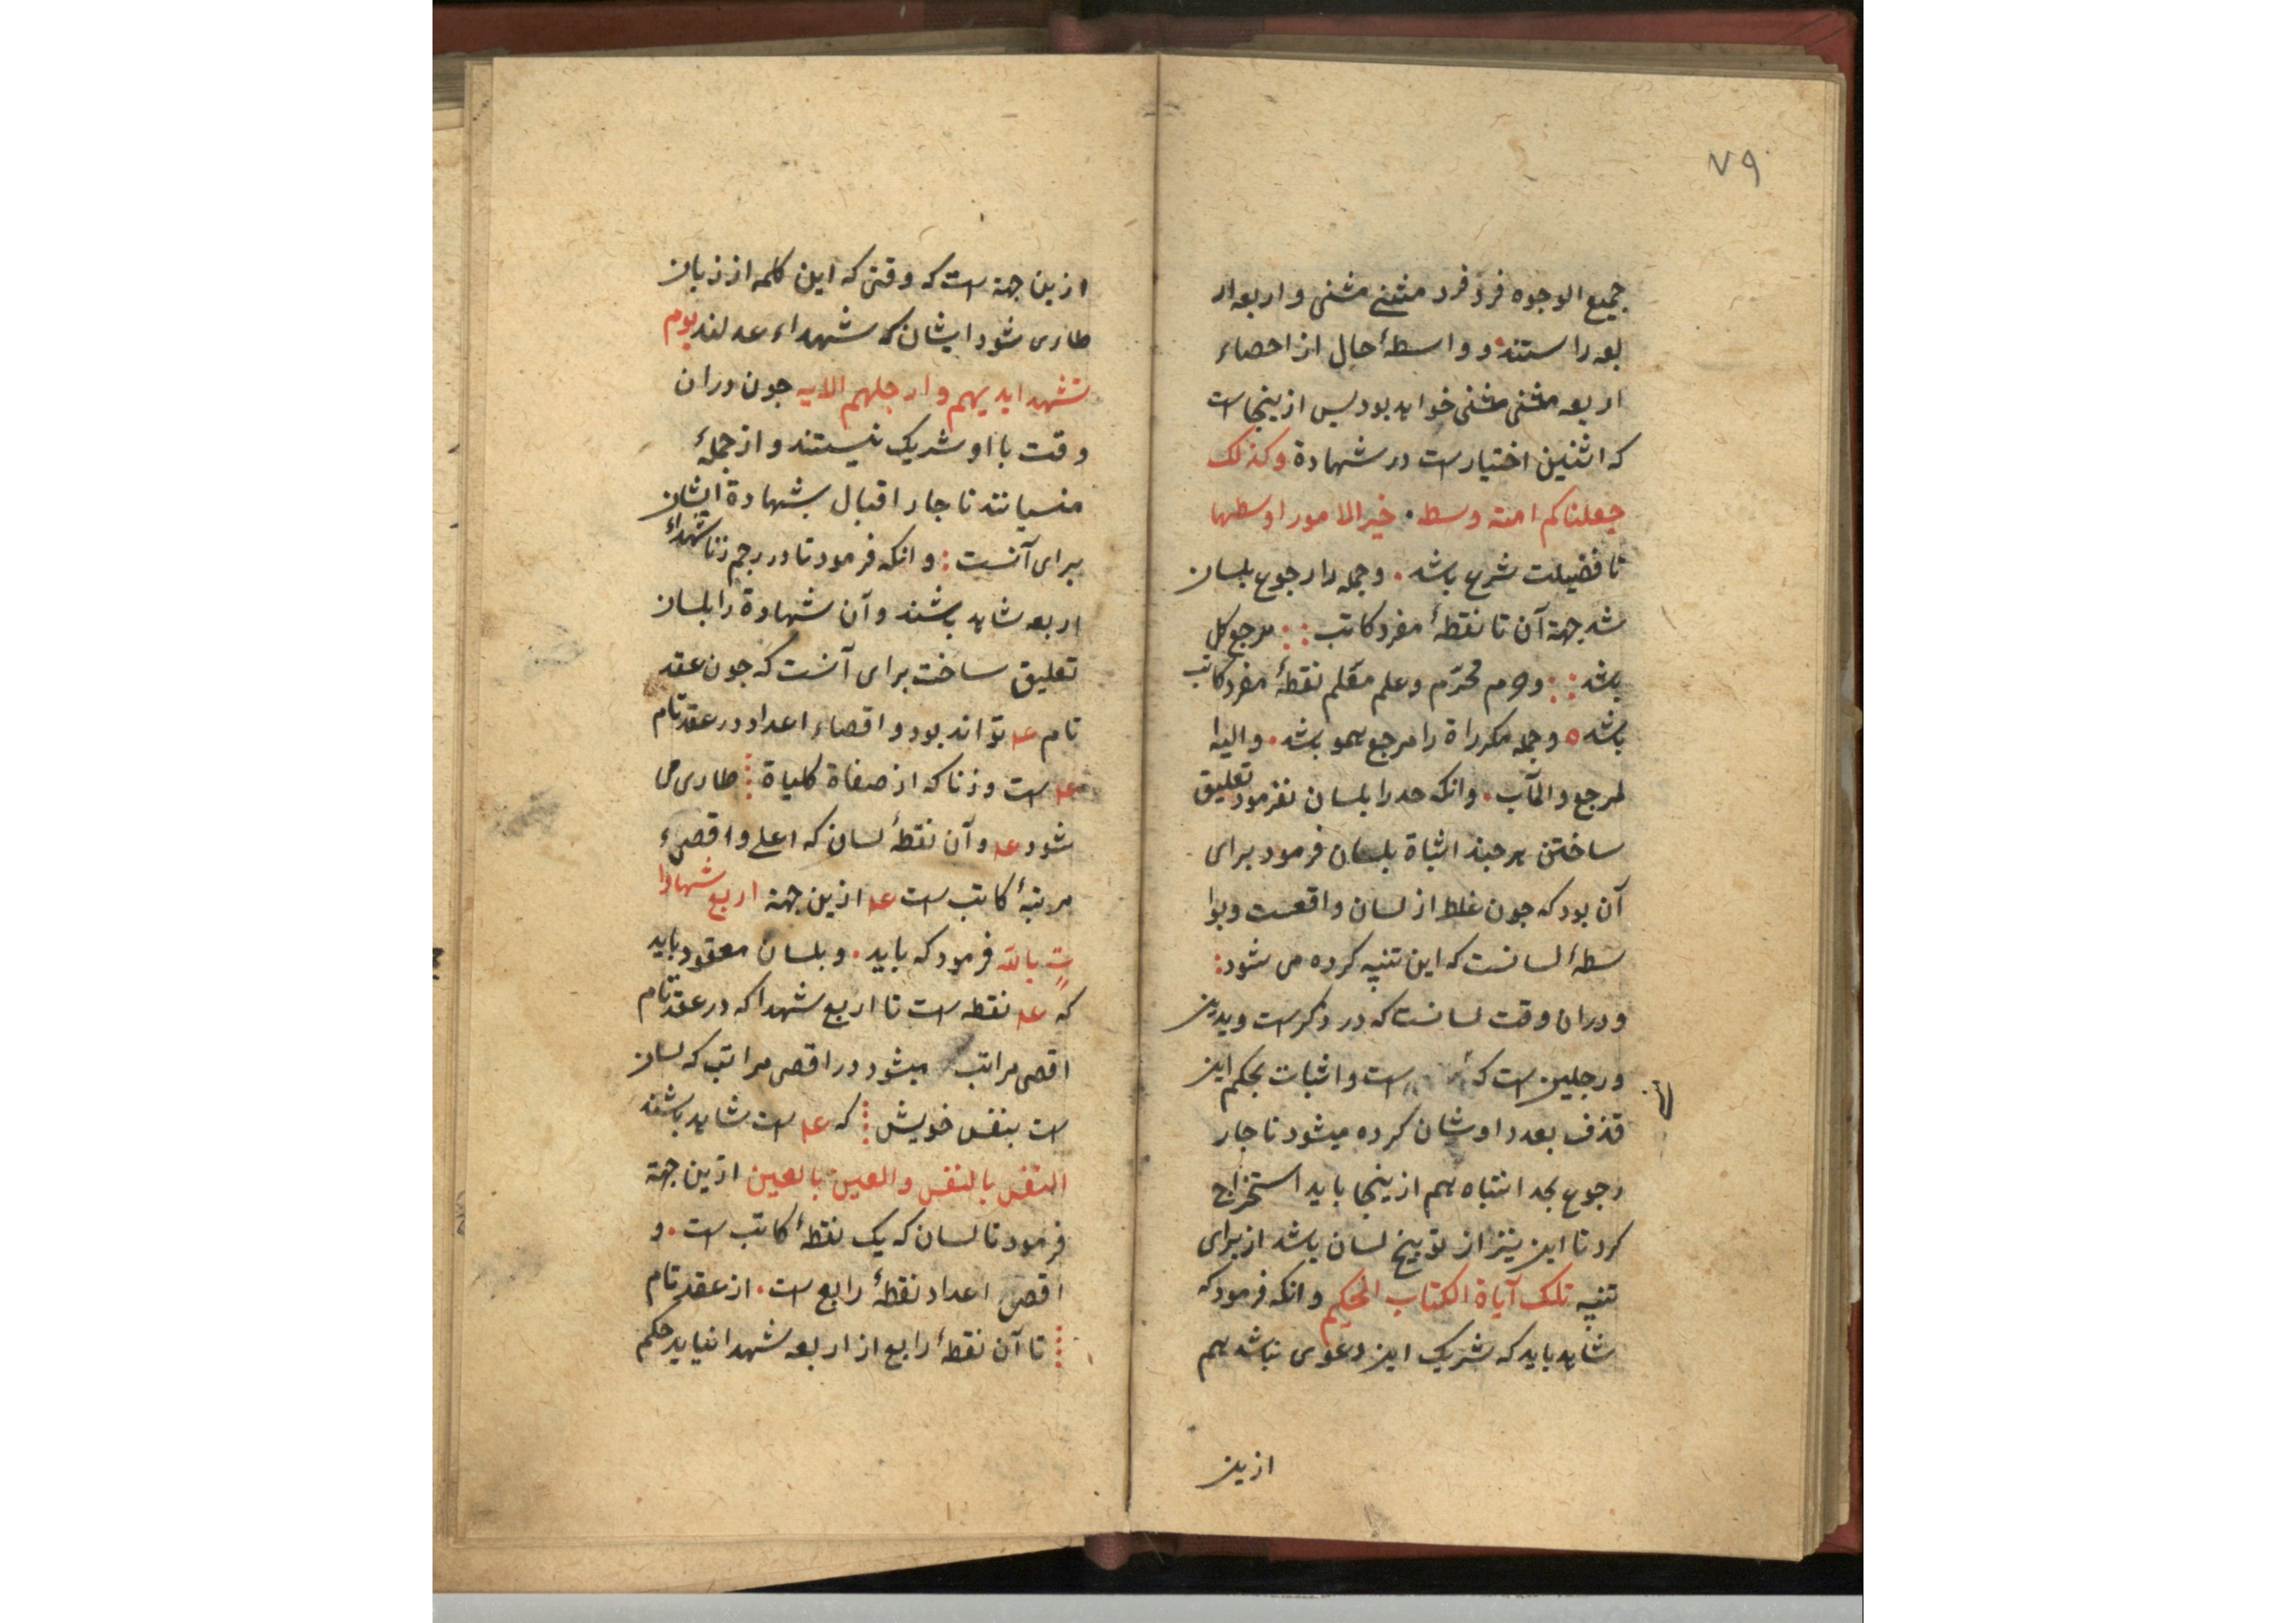 ٧٩
جمیع الوجوه فرد فرد مثنی مثنی و اربعه ار
بعه راستند و واسطهٔ حال از احصاء
اربعه مثنی مثنی خواهد بود پس ازینجا است
که اثنین اختیار ست در شهادة وکذلک
جعلناکم امته وسط . خیر الامور اوسطها
تا فضیلت شرع باشد . وجمله را رجوع بلسان
شد جهة آن تا نقطهٔ مفرد کاتب : : مرجع کل
باشد : : و محرّم وعلم معلم نقطهٔ مفرد کاتب
باشد ه وجمله مکرراة را مرجع همو باشد . والیه ا
لمرجع والمآب . وانکه حد را بلسان نفرمود تعلیق
ساختن هرجند اثباة بلسان فرمود برای
آن بود که جون غلط از لسان واقعست وبوا
سطهٔ لسانست که این تنبیه کرده می شود :
ودران وقت لسانست که در ذکر ست ویدین
ورجلین ست که ست واثبات بحکم این
قذف بعدد اوشان کرده میشود تا جار
رجوع بحد انتباه هم ازینجا باید استخراج
کرد تا این نیز از توبیخ لسان باشد از برای
تنبیه تلک آیاة الکتاب الحکیم وانکه فرمود که
شاهد باید که شریک این دعوی نباشد هم
ازین
ازین جهة ست که وقتی که این کلمه از زبان
طاری شود ایشان که شهداء عدلند یوم
تشهد ایدیهم وارجلهم الایه جون دران
وقت با او شریک نیستند واز جملهٔ
منسیانند تا جار اقبال بشهادة ایشان
برای آنست : وانکه فرمود تا در رجم زنا شهداء
اربعه شاهد باشند وآن شهادة را بلسان
تعلیق ساخت برای آنست که جون عقد
تام عه تواند بود واقصاء اعداد در عقد تام
عه ست وزنا که از صفاة کلیاة طاری می
شود عه وآن نقطهٔ لسان که اعلی واقصیء
مرتبهٔ کاتب ست عه ازین جهة اربع شهادا
ت بالله فرمود که باید . وبلسان معقود باید
که عه نقطه ست تا اربع شهدا که در عقد تام
اقصی مراتب میشود در اقصی مراتب که لسان
ست بنفس خویش که عه ست شاهد باشند
النفس بالنفس والعین بالعین ازین جهة
فرمود تا لسان که یک نقطهٔ کاتب ست . و
اقصی اعداد نقطهٔ رابع ست . از عقد تام
تا آن نقطهٔ رابع از اربعه شهدا نیاید حکم